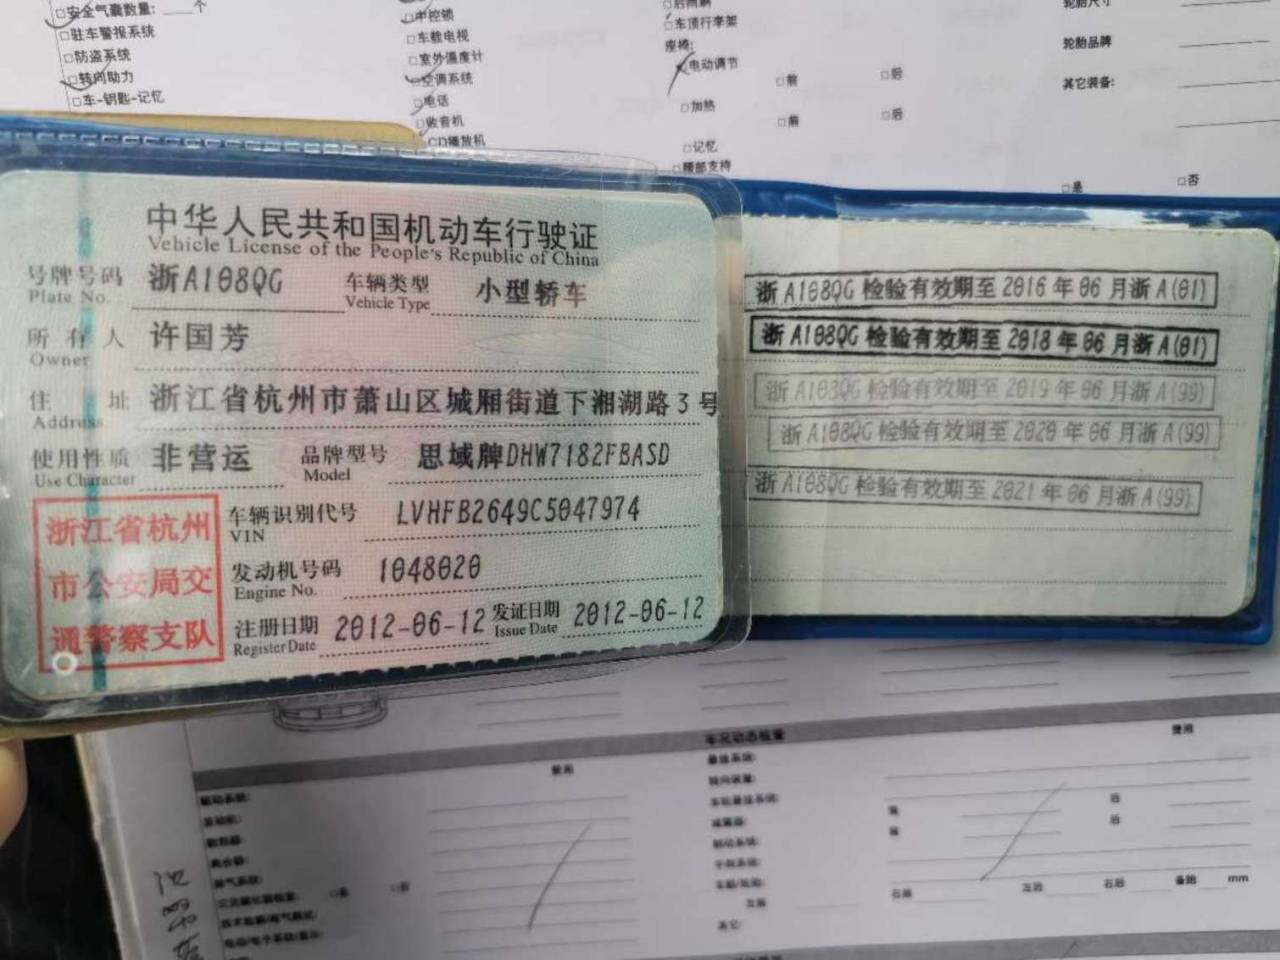 □安全气囊数量:____个
□驻车警报系统
□防盗系统
□转向助力
□车-钥匙-记忆
□中控锁
□车载电视
□室外温度计
□空调系统
□电话
□收音机
□CD播放机
□车顶行李架
座椅:
电动调节 □前 □后
□加热 □前 □后
□记忆
□腰部支持
□是 □否
轮胎尺寸
轮胎品牌
其它装备:
中华人民共和国机动车行驶证
Vehicle License of the People's Republic of China
号牌号码 浙A108QG 车辆类型 小型轿车
Plate No. Vehicle Type
所有人 许国芳
Owner
住址 浙江省杭州市萧山区城厢街道下湘湖路3号
Address
使用性质 非营运 品牌型号 思域牌DHW7182FBASD
Use Character Model
浙江省杭州
市公安局交
通警察支队
车辆识别代号 LVHFB2649C5047974
VIN
发动机号码 1048020
Engine No.
注册日期 2012-06-12 发证日期 2012-06-12
Register Date Issue Date
浙A108QG检验有效期至2016年06月浙A(01)
浙A108QG检验有效期至2018年06月浙A(01)
浙A108QG检验有效期至2019年06月浙A(99)
浙A108QG检验有效期至2020年06月浙A(99)
浙A108QG检验有效期至2021年06月浙A(99)
车况动态检查
费用
费用
发动机:
其它:
左后 右后 备胎 mm